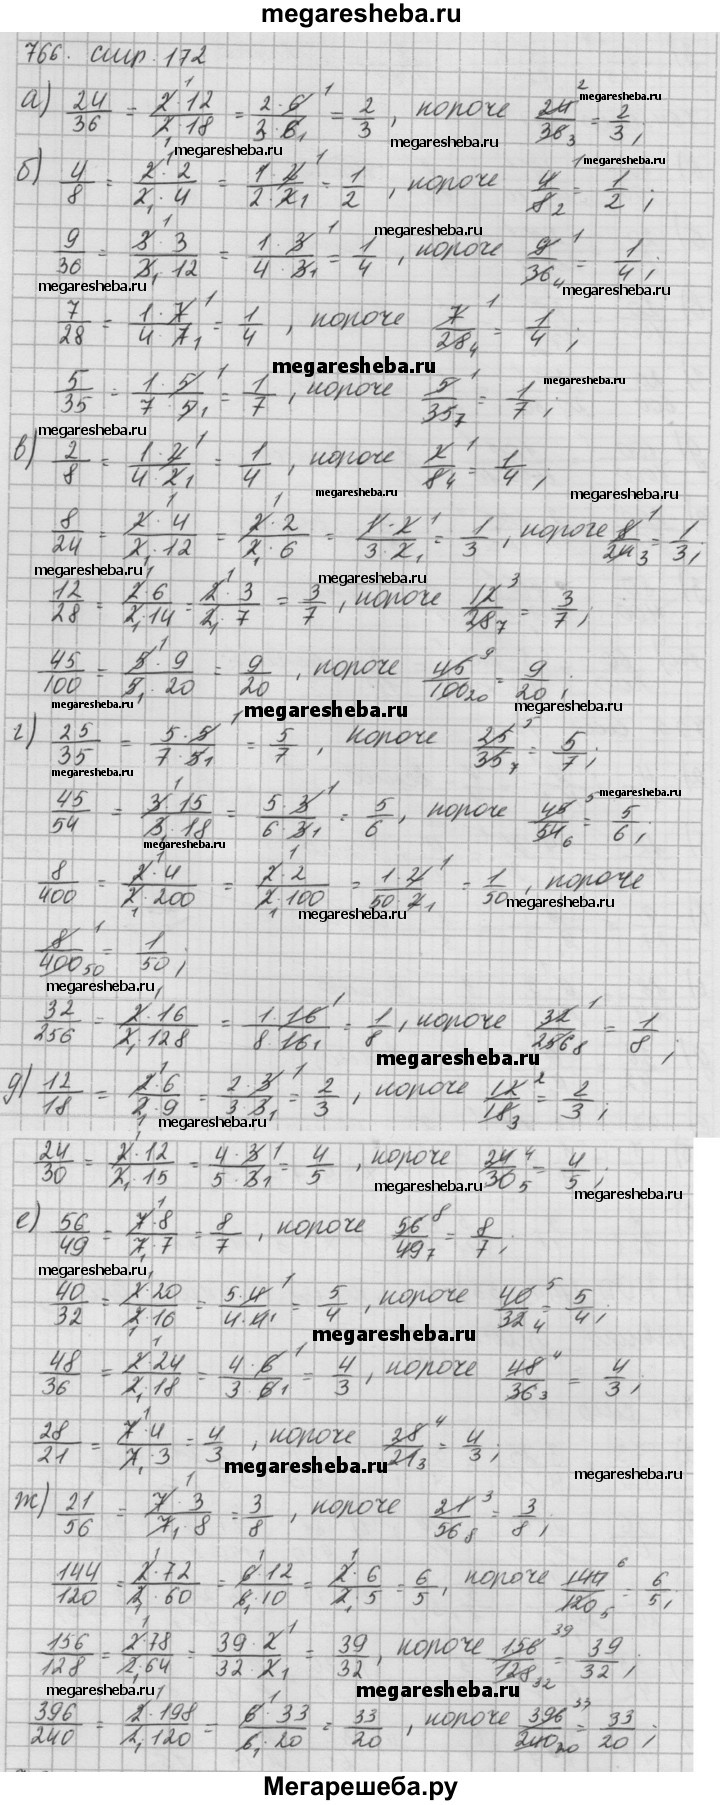 megaresheba.ru
766. стр. 172
а) 24/36 = 2·12/2·18 = 2·6/3·6 = 2/3, короче 24/36 = 2/3;
б) 4/8 = 2·2/2·4 = 1·2/2·2 = 1/2, короче 4/8 = 1/2;
9/36 = 3·3/3·12 = 1·3/4·3 = 1/4, короче 9/36 = 1/4;
7/28 = 1·7/4·7 = 1/4, короче 7/28 = 1/4;
5/35 = 1·5/7·5 = 1/7, короче 5/35 = 1/7;
в) 2/8 = 1·2/4·2 = 1/4, короче 2/8 = 1/4;
8/24 = 2·4/2·12 = 2·2/2·6 = 1·2/3·2 = 1/3, короче 8/24 = 1/3;
12/28 = 2·6/2·14 = 2·3/2·7 = 3/7, короче 12/28 = 3/7;
45/100 = 5·9/5·20 = 9/20, короче 45/100 = 9/20;
г) 25/35 = 5·5/7·5 = 5/7, короче 25/35 = 5/7;
45/54 = 3·15/3·18 = 5·3/6·3 = 5/6, короче 45/54 = 5/6;
8/400 = 2·4/2·200 = 2·2/2·100 = 1·2/50·2 = 1/50, короче
8/400 = 1/50;
32/256 = 2·16/2·128 = 1·16/8·16 = 1/8, короче 32/256 = 1/8;
д) 12/18 = 2·6/2·9 = 2·3/3·3 = 2/3, короче 12/18 = 2/3;
24/30 = 2·12/2·15 = 4·3/5·3 = 4/5, короче 24/30 = 4/5;
е) 56/49 = 7·8/7·7 = 8/7, короче 56/49 = 8/7;
40/32 = 2·20/2·16 = 5·4/4·4 = 5/4, короче 40/32 = 5/4;
48/36 = 2·24/2·18 = 4·6/3·6 = 4/3, короче 48/36 = 4/3;
28/21 = 7·4/7·3 = 4/3, короче 28/21 = 4/3;
ж) 21/56 = 7·3/7·8 = 3/8, короче 21/56 = 3/8;
144/120 = 2·72/2·60 = 6·12/6·10 = 2·6/2·5 = 6/5, короче 144/120 = 6/5;
156/128 = 2·78/2·64 = 39·2/32·2 = 39/32, короче 156/128 = 39/32;
396/240 = 2·198/2·120 = 6·33/6·20 = 33/20, короче 396/240 = 33/20;
Мегарешеба.ру